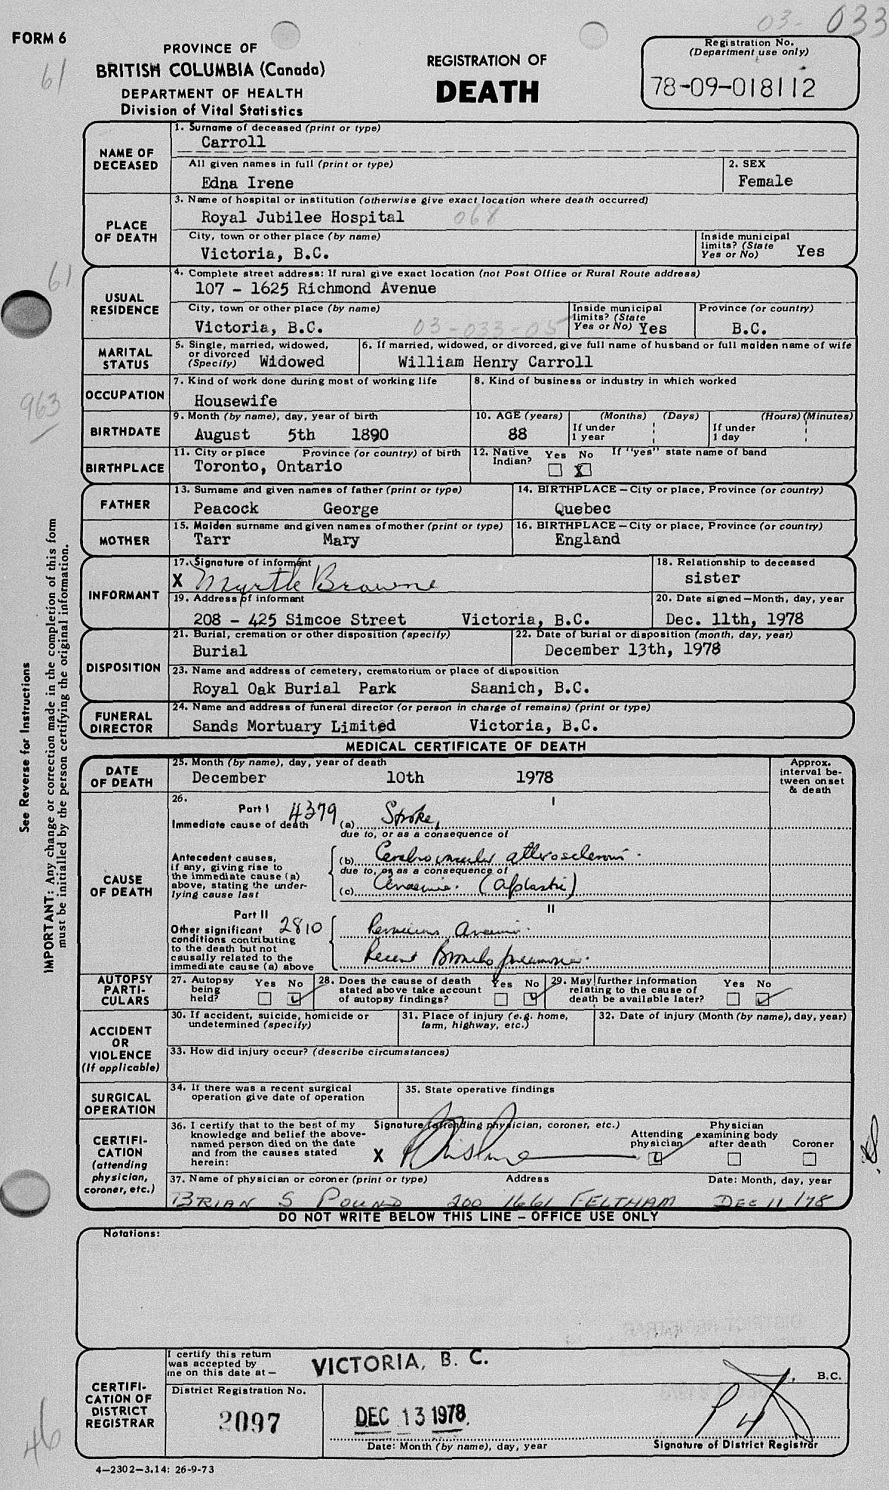 03- 033
FORM 6
61
PROVINCE OF
BRITISH COLUMBIA (Canada)
DEPARTMENT OF HEALTH
Division of Vital Statistics
REGISTRATION OF
DEATH
Registration No.
(Department use only)
78-09-018112
NAME OF
DECEASED
1. Surname of deceased (print or type)
Carroll
All given names in full (print or type)
Edna Irene
2. SEX
Female
PLACE
OF DEATH
3. Name of hospital or institution (otherwise give exact location where death occurred)
Royal Jubilee Hospital 068
City, town or other place (by name)
Victoria, B.C.
Inside municipal
limits? (State
Yes or No) Yes
61
USUAL
RESIDENCE
4. Complete street address: If rural give exact location (not Post Office or Rural Route address)
107 - 1625 Richmond Avenue
City, town or other place (by name)
Victoria, B.C. 03-033-05
Inside municipal
limits? (State
Yes or No) Yes
Province (or country)
B.C.
MARITAL
STATUS
5. Single, married, widowed,
or divorced
(Specify) Widowed
6. If married, widowed, or divorced, give full name of husband or full maiden name of wife
William Henry Carroll
963
OCCUPATION
7. Kind of work done during most of working life
Housewife
8. Kind of business or industry in which worked
BIRTHDATE
9. Month (by name), day, year of birth
August 5th 1890
10. AGE (years)
88
(Months) (Days)
If under
1 year
(Hours) (Minutes)
If under
1 day
BIRTHPLACE
11. City or place Province (or country) of birth
Toronto, Ontario
12. Native
Indian?
Yes No
X
If "yes" state name of band
FATHER
13. Surname and given names of father (print or type)
Peacock George
14. BIRTHPLACE—City or place, Province (or country)
Quebec
MOTHER
15. Maiden surname and given names of mother (print or type)
Tarr Mary
16. BIRTHPLACE—City or place, Province (or country)
England
INFORMANT
17. Signature of informant
X Myrtle Browne
18. Relationship to deceased
sister
19. Address of informant
208 - 425 Simcoe Street Victoria, B.C.
20. Date signed—Month, day, year
Dec. 11th, 1978
DISPOSITION
21. Burial, cremation or other disposition (specify)
Burial
22. Date of burial or disposition (month, day, year)
December 13th, 1978
23. Name and address of cemetery, crematorium or place of disposition
Royal Oak Burial Park Saanich, B.C.
FUNERAL
DIRECTOR
24. Name and address of funeral director (or person in charge of remains) (print or type)
Sands Mortuary Limited Victoria, B.C.
See Reverse for Instructions
IMPORTANT: Any change or correction made in the completion of this form
must be initialled by the person certifying the original information.
MEDICAL CERTIFICATE OF DEATH
DATE
OF DEATH
25. Month (by name), day, year of death
December 10th 1978
Approx.
interval be-
tween onset
& death
CAUSE
OF DEATH
26.
Part I
Immediate cause of death 4379
I
(a) Stroke,
due to, or as a consequence of
Antecedent causes,
if any, giving rise to
the immediate cause (a)
above, stating the under-
lying cause last
(b) Cerebrovascular atherosclerosis.
due to, or as a consequence of
(c) Anaemia. (aplastic)
Part II
Other significant
conditions contributing
to the death but not
causally related to the
immediate cause (a) above
2810
II
Pernicious Anaemia.
Recent Bronchopneumonia.
AUTOPSY
PARTI-
CULARS
27. Autopsy
being
held?
Yes No
28. Does the cause of death
stated above take account
of autopsy findings?
Yes No
29. May further information
relating to the cause of
death be available later?
Yes No
ACCIDENT
OR
VIOLENCE
(If applicable)
30. If accident, suicide, homicide or
undetermined (specify)
31. Place of injury (e.g. home,
farm, highway, etc.)
32. Date of injury (Month (by name), day, year)
33. How did injury occur? (describe circumstances)
SURGICAL
OPERATION
34. If there was a recent surgical
operation give date of operation
35. State operative findings
CERTIFI-
CATION
(attending
physician,
coroner, etc.)
36. I certify that to the best of my
knowledge and belief the above-
named person died on the date
and from the causes stated
herein:
Signature (attending physician, coroner, etc.)
X
Attending
physician
Physician
examining body
after death
Coroner
37. Name of physician or coroner (print or type) Address Date: Month, day, year
BRIAN S POUND 200 1661 FELTHAM DEC 11/78
DO NOT WRITE BELOW THIS LINE – OFFICE USE ONLY
Notations:
CERTIFI-
CATION OF
DISTRICT
REGISTRAR
I certify this return
was accepted by
me on this date at—
VICTORIA, B. C.
B.C.
District Registration No.
2097
DEC 13 1978
Date: Month (by name), day, year
Signature of District Registrar
46
4—2302—3.14: 26-9-73